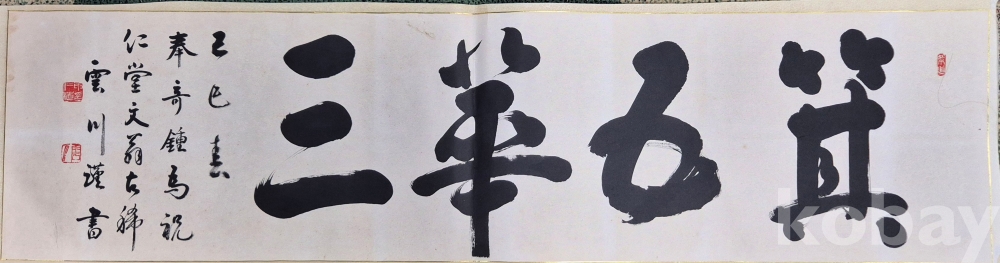 箕五華三
己巳春
奉寄鍾馬祝
仁堂文翁古稀
雲川謹書
kobay